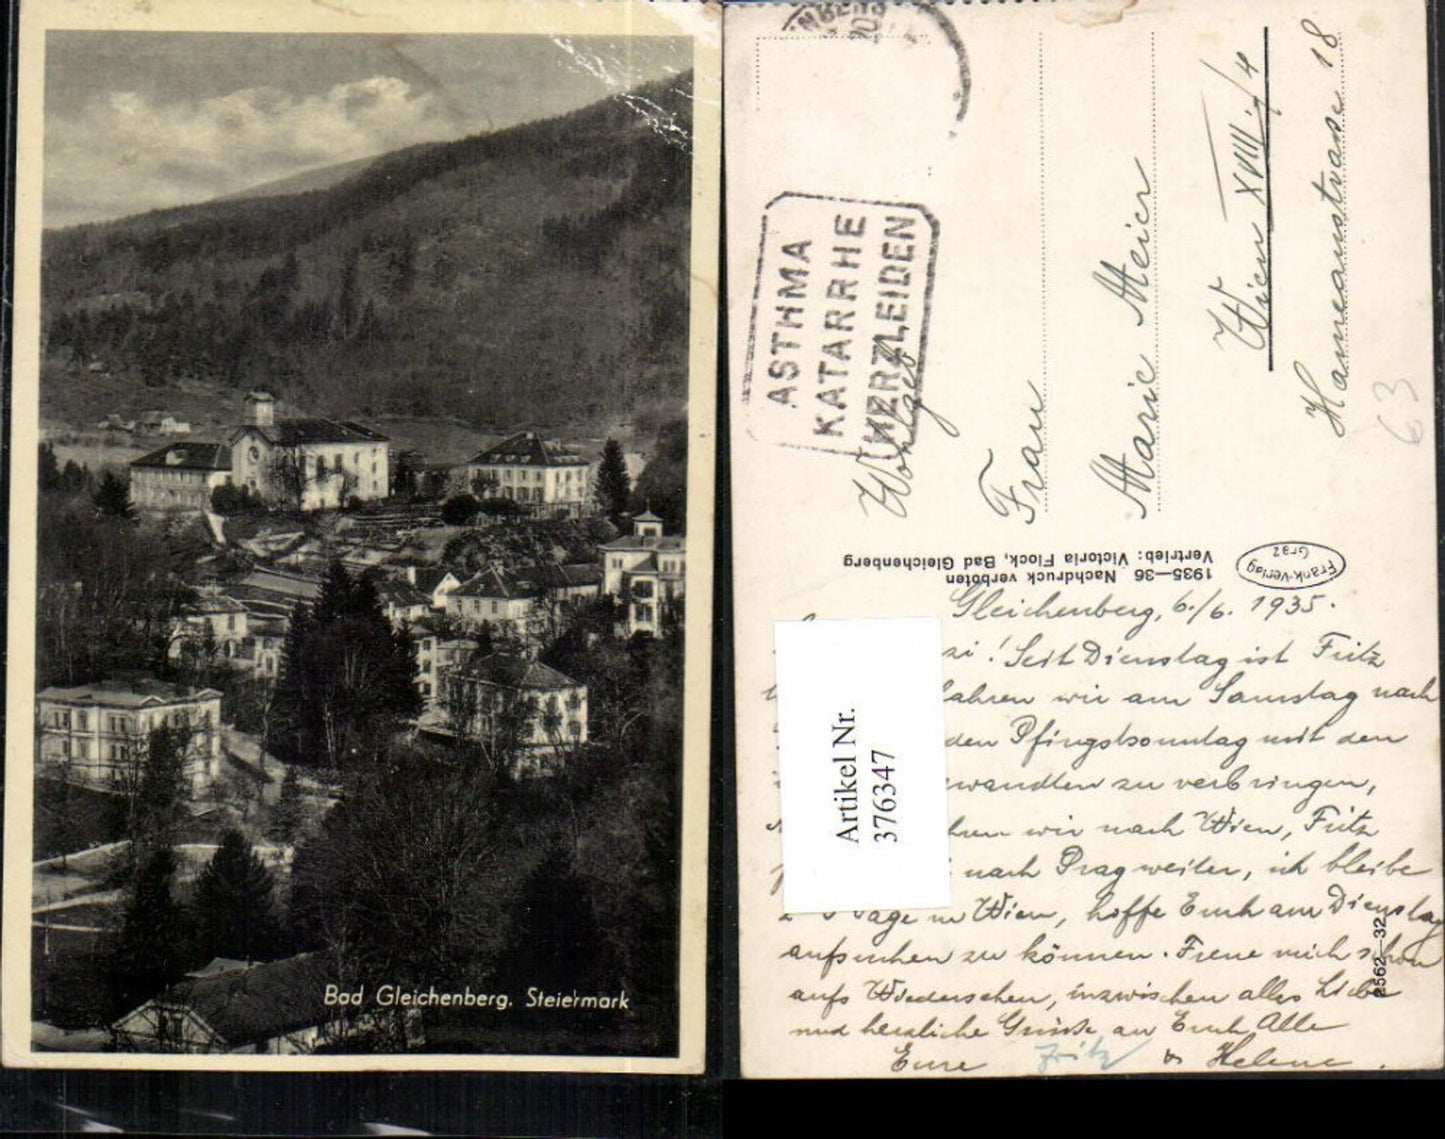 Bad Gleichenberg. Steiermark
ASTHMA
KATARRHE
HERZLEIDEN
Wohlgeb
Frau
Marie Meier
Wien XVIII./4
Hameaustrasse 18
63
Frank-Verlag
Graz
1935—36 Nachdruck verboten
Vertrieb: Victoria Flock, Bad Gleichenberg
Gleichenberg, 6./6. 1935.
zi! Seit Dienstag ist Fritz
ahren wir am Samstag nach
den Pfingstsonntag mit den
wandten zu verbringen,
hren wir nach Wien, Fritz
nach Prag weiter, ich bleibe
Tage in Wien, hoffe Euch am Dienstag
aufsuchen zu können. Freue mich schon
aufs Wiedersehen, inzwischen alles Liebe
und herzliche Grüße an Euch Alle
Eure Fritz & Helene.
Artikel Nr.
376347
2562—32